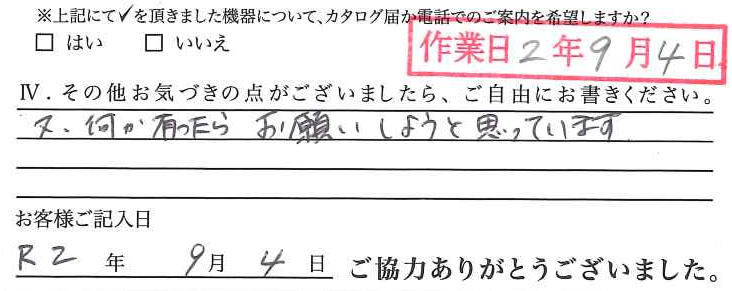 ※上記にて✓を頂きました機器について、カタログ届か電話でのご案内を希望しますか?
□ はい □ いいえ
作業日2年9月4日
Ⅳ．その他お気づきの点がございましたら、ご自由にお書きください。
又、何か有ったら お願いしようと思っています
お客様ご記入日
R2 年 9月 4 日 ご協力ありがとうございました。